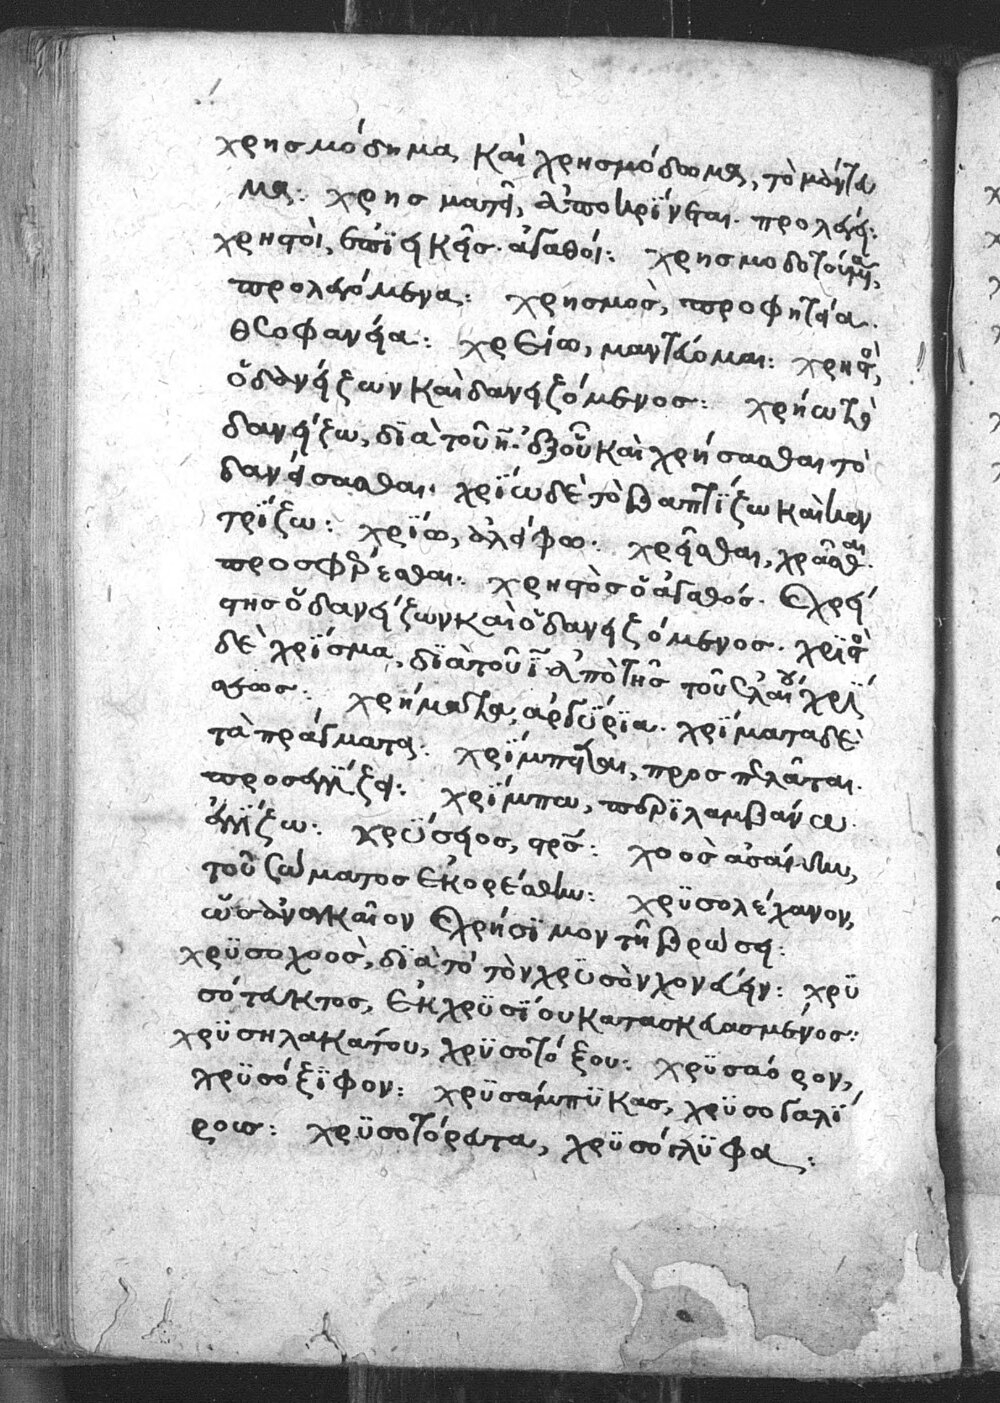 χρησμόδημα καὶ χρησμόδομα, τὸ μάντευ
μα: χρησματεῖ, ἀποκρίνεται. προλέγει:
χρηστοὶ, ἐπιεικεῖς. ἀγαθοί: χρησμοδοτούμενα,
προλεγόμενα: χρησμοσ, προφητεία.
θεοφανεία: χρείω, μαντεύομαι: χρήστης,
ὁ δανείζων καὶ δανειζόμενος: χρήω τὸ
δανείζω, διὰ τοῦ η. ἐξ οὗ καὶ χρήσασθαι τὸ
δανείσασθαι. χρΐω δὲ τὸ βαπτΐζω καὶ κεν
τρΐζω: χρΐω, ἀλείφω. χρεῖσθαι, χρᾶσθαι.
προσφέρεσθαι. χρηστὸσ ὁ ἀγαθόσ. χρεώ
στης ὁ δανείζων καὶ ὁ δανειζόμενοσ. χριστὸσ
δὲ χρΐσμα, διὰ τοῦ ϊ. ἀπὸ τῆσ τοῦ ἐλαίου χρΐ
σεωσ: χρήματα, ἀργΰρια. χρΐματα δὲ
τὰ πράγματα: χρΐμπτεται, προσπελᾶται.
προσεγγΐζει: χρΐμπω, περιλαμβάνω.
ἐγγΐζω: χρΰσεος,
τοῦ σώματοσ ἐκορέσθην: χρϋσολάχανον,
ὡσ ἀναγκαῖον χρήσιμον τῆ βρώσει:
χρϋσοχοοσ, διὰ τὸ τὸν χρϋσὸν χονεύειν: χρϋ
σότευκτος, ἐκ χρϋσΐου κατασκευασμένοσ:
χρϋσηλακάτου, χρϋσοτόξου: χρϋσαόρον,
χρϋσόξϊφον: χρϋσάμπϋκασ, χρϋσοχαλΐ
ρουσ: χρϋσοτόρευτα, χρϋσόγλϋφα: